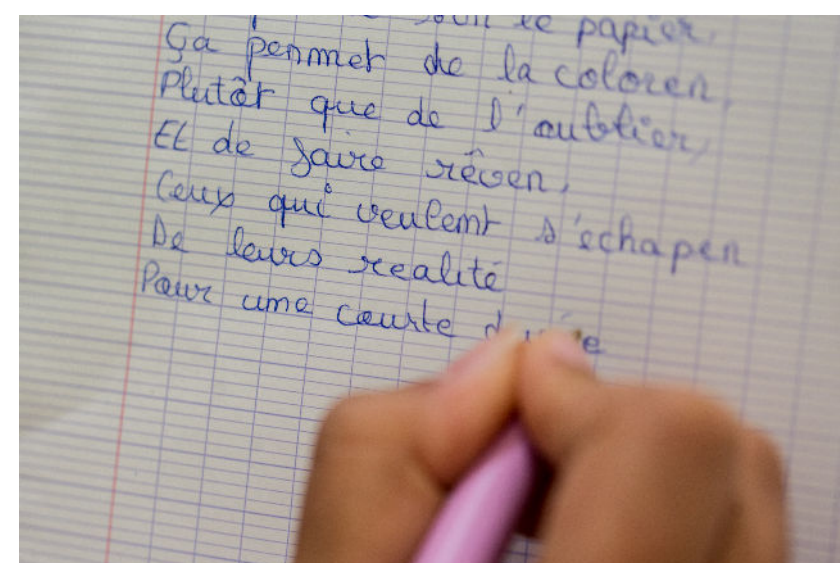 le papier,
Ça permet de la colorer,
Plutôt que de l'oublier,
Et de faire rêver,
Ceux qui veulent s'échaper
De leurs realité
Pour une courte